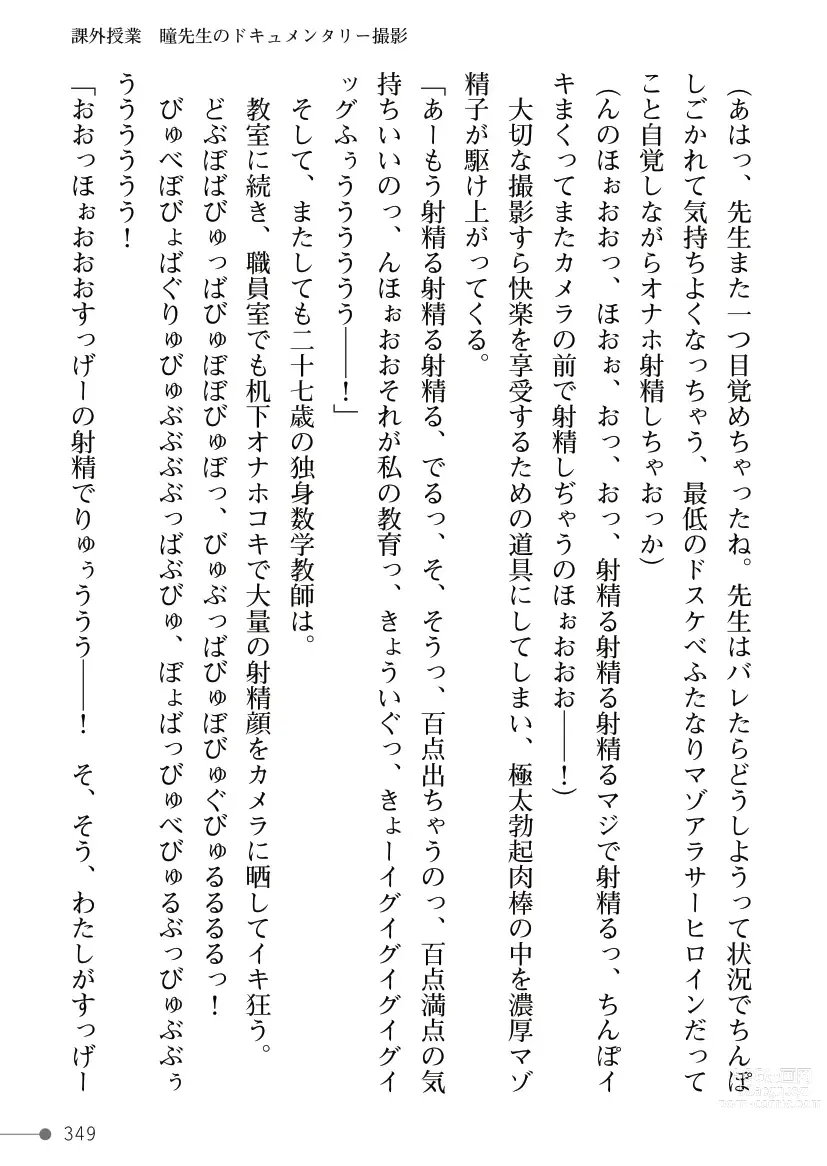 課外授業　瞳先生のドキュメンタリー撮影
(あはっ、先生また一つ目覚めちゃったね。先生はバレたらどうしようって状況でちんぽ
しごかれて気持ちよくなっちゃう、最低のドスケベふたなりマゾアラサーヒロインだって
こと自覚しながらオナホ射精しちゃおっか)
(んのほぉおおっ、ほおぉ、おっ、おっ、射精る射精る射精るマジで射精るっ、ちんぽイ
キまくってまたカメラの前で射精しぢゃうのほぉおおお――！)
　大切な撮影すら快楽を享受するための道具にしてしまい、極太勃起肉棒の中を濃厚マゾ
精子が駆け上がってくる。
「あーもう射精る射精る射精る、でるっ、そ、そうっ、百点出ちゃうのっ、百点満点の気
持ちいいのっ、んほぉおおそれが私の教育っ、きょういぐっ、きょーイグイグイグイグイ
ッグふぅううううう――！」
　そして、またしても二十七歳の独身数学教師は。
　教室に続き、職員室でも机下オナホコキで大量の射精顔をカメラに晒してイキ狂う。
　どぶぼばびゅっばびゅぼぼびゅぼっ、びゅぶっばびゅぼびゅぐびゅるるるるっ！
　びゅべぼびょばぐりゅびゅぶぶぶぶっばぶびゅ、ぼょばっびゅべびゅるぶっびゅぶぶぅ
うううううう！
「おおっほぉおおおすっげーの射精でりゅぅううう――！　そ、そう、わたしがすっげー
349